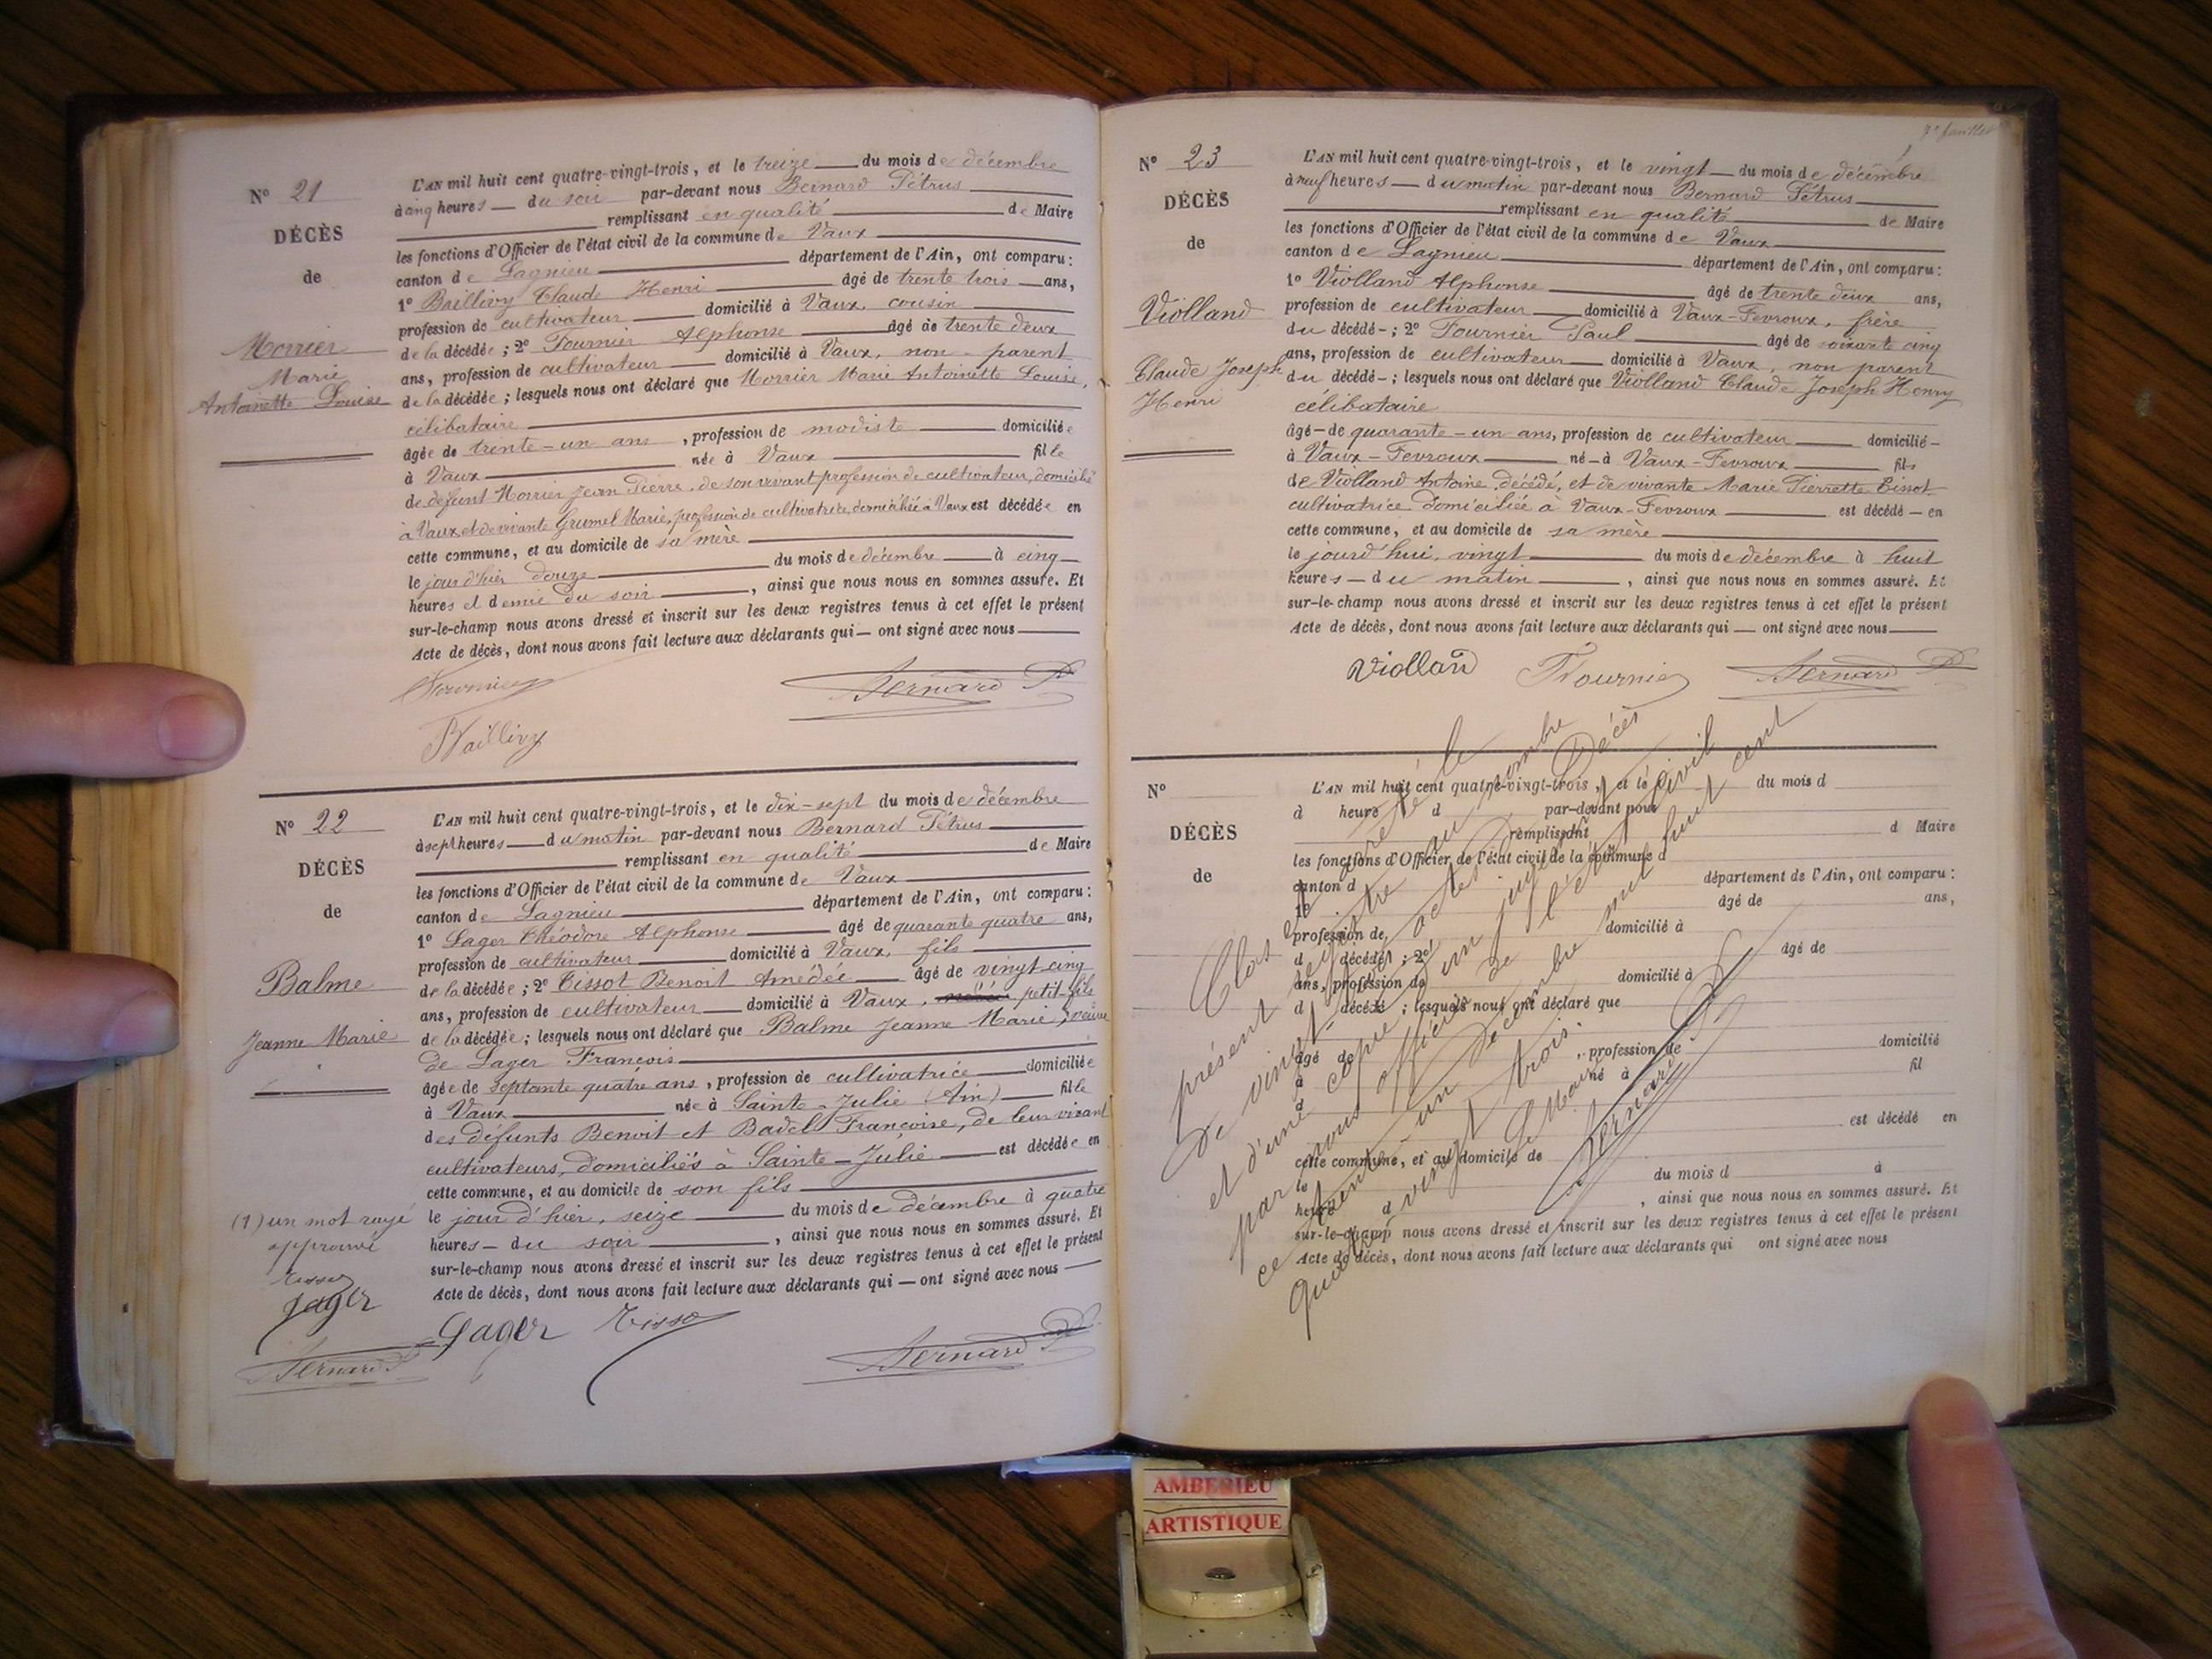 N° 21
DÉCÈS
de
Morrier
Marie
Antoinette Louise
L'AN mil huit cent quatre-vingt-trois, et le treize du mois de décembre
à cinq heures du soir par-devant nous Bernard Pétrus
remplissant en qualité de Maire
les fonctions d'Officier de l'état civil de la commune de Vaux
canton de Lagnieu département de l'Ain, ont comparu :
1° Baillivy Claude Henri âgé de trente trois ans,
profession de cultivateur domicilié à Vaux, cousin
de la décédée ; 2° Fournier Alphonse âgé de trente deux
ans, profession de cultivateur domicilié à Vaux, non parent
de la décédée ; lesquels nous ont déclaré que Morrier Marie Antoinette Louise,
célibataire
âgée de trente-un ans, profession de modiste domiciliée
à Vaux née à Vaux fille
de défunt Morrier Jean Pierre, de son vivant profession de cultivateur, domicilié
à Vaux et de vivante Grumel Marie, profession de cultivatrice, domiciliée à Vaux est décédée en
cette commune, et au domicile de sa mère
le jour d'hier douze du mois de décembre à cinq
heures et demie du soir, ainsi que nous nous en sommes assuré. Et
sur-le-champ nous avons dressé et inscrit sur les deux registres tenus à cet effet le présent
Acte de décès, dont nous avons fait lecture aux déclarants qui — ont signé avec nous
Fournier
Bernard P
Baillivy
N° 22
DÉCÈS
de
Balme
Jeanne Marie
L'AN mil huit cent quatre-vingt-trois, et le dix-sept du mois de décembre
à sept heures du matin par-devant nous Bernard Pétrus
remplissant en qualité de Maire
les fonctions d'Officier de l'état civil de la commune de Vaux
canton de Lagnieu département de l'Ain, ont comparu :
1° Lager Théodore Alphonse âgé de quarante quatre ans,
profession de cultivateur domicilié à Vaux, fils
de la décédée ; 2° Tissot Benoit Amédée âgé de vingt cinq
ans, profession de cultivateur domicilié à Vaux, petit-fils
de la décédée ; lesquels nous ont déclaré que Balme Jeanne Marie, veuve
de Lager François
âgée de septante quatre ans, profession de cultivatrice domiciliée
à Vaux née à Sainte-Julie (Ain) fille
des défunts Benoit et Badel Françoise, de leur vivant
cultivateurs, domiciliés à Sainte-Julie est décédée en
cette commune, et au domicile de son fils
le jour d'hier, seize du mois de décembre à quatre
heures du soir, ainsi que nous nous en sommes assuré. Et
sur-le-champ nous avons dressé et inscrit sur les deux registres tenus à cet effet le présent
Acte de décès, dont nous avons fait lecture aux déclarants qui — ont signé avec nous
(1) un mot rayé
approuvé
Tissot
Lager
Bernard P
Lager Tissot
Bernard P
N° 23
DÉCÈS
de
Violland
Claude Joseph
Henri
L'AN mil huit cent quatre-vingt-trois, et le vingt du mois de décembre
à neuf heures du matin par-devant nous Bernard Pétrus
remplissant en qualité de Maire
les fonctions d'Officier de l'état civil de la commune de Vaux
canton de Lagnieu département de l'Ain, ont comparu :
1° Violland Alphonse âgé de trente deux ans,
profession de cultivateur domicilié à Vaux-Fevroux, frère
du décédé ; 2° Fournier Paul âgé de soixante cinq
ans, profession de cultivateur domicilié à Vaux, non parent
du décédé ; lesquels nous ont déclaré que Violland Claude Joseph Henry
célibataire
âgé de quarante-un ans, profession de cultivateur domicilié
à Vaux-Fevroux né à Vaux-Fevroux fils
de Violland Antoine, décédé, et de vivante Marie Pierrette Tissot
cultivatrice domiciliée à Vaux-Fevroux est décédé en
cette commune, et au domicile de sa mère
le jourd'hui, vingt du mois de décembre à huit
heures du matin, ainsi que nous nous en sommes assuré. Et
sur-le-champ nous avons dressé et inscrit sur les deux registres tenus à cet effet le présent
Acte de décès, dont nous avons fait lecture aux déclarants qui — ont signé avec nous
Violland Fournier Bernard P
N°
DÉCÈS
de
L'AN mil huit cent quatre-vingt-trois, et le du mois d
à heure d par-devant nous
remplissant d Maire
les fonctions d'Officier de l'état civil de la commune d
canton d département de l'Ain, ont comparu :
1° âgé de ans,
profession de domicilié à
d décédé ; 2° âgé de
ans, profession de domicilié à
d décédé ; lesquels nous ont déclaré que
âgé de , profession de domicilié
à né à fil
d
est décédé en
cette commune, et au domicile de
le du mois d à
heure d , ainsi que nous nous en sommes assuré. Et
sur-le-champ nous avons dressé et inscrit sur les deux registres tenus à cet effet le présent
Acte de décès, dont nous avons fait lecture aux déclarants qui ont signé avec nous
Clos et arrêté le
présent registre au nombre
de vingt-trois actes Décès
et d'une copie d'un jugement
par nous officier de l'état civil
ce trente-un décembre mil huit cent
quatre vingt trois.
Le Maire
Bernard P
AMBERIEU
ARTISTIQUE